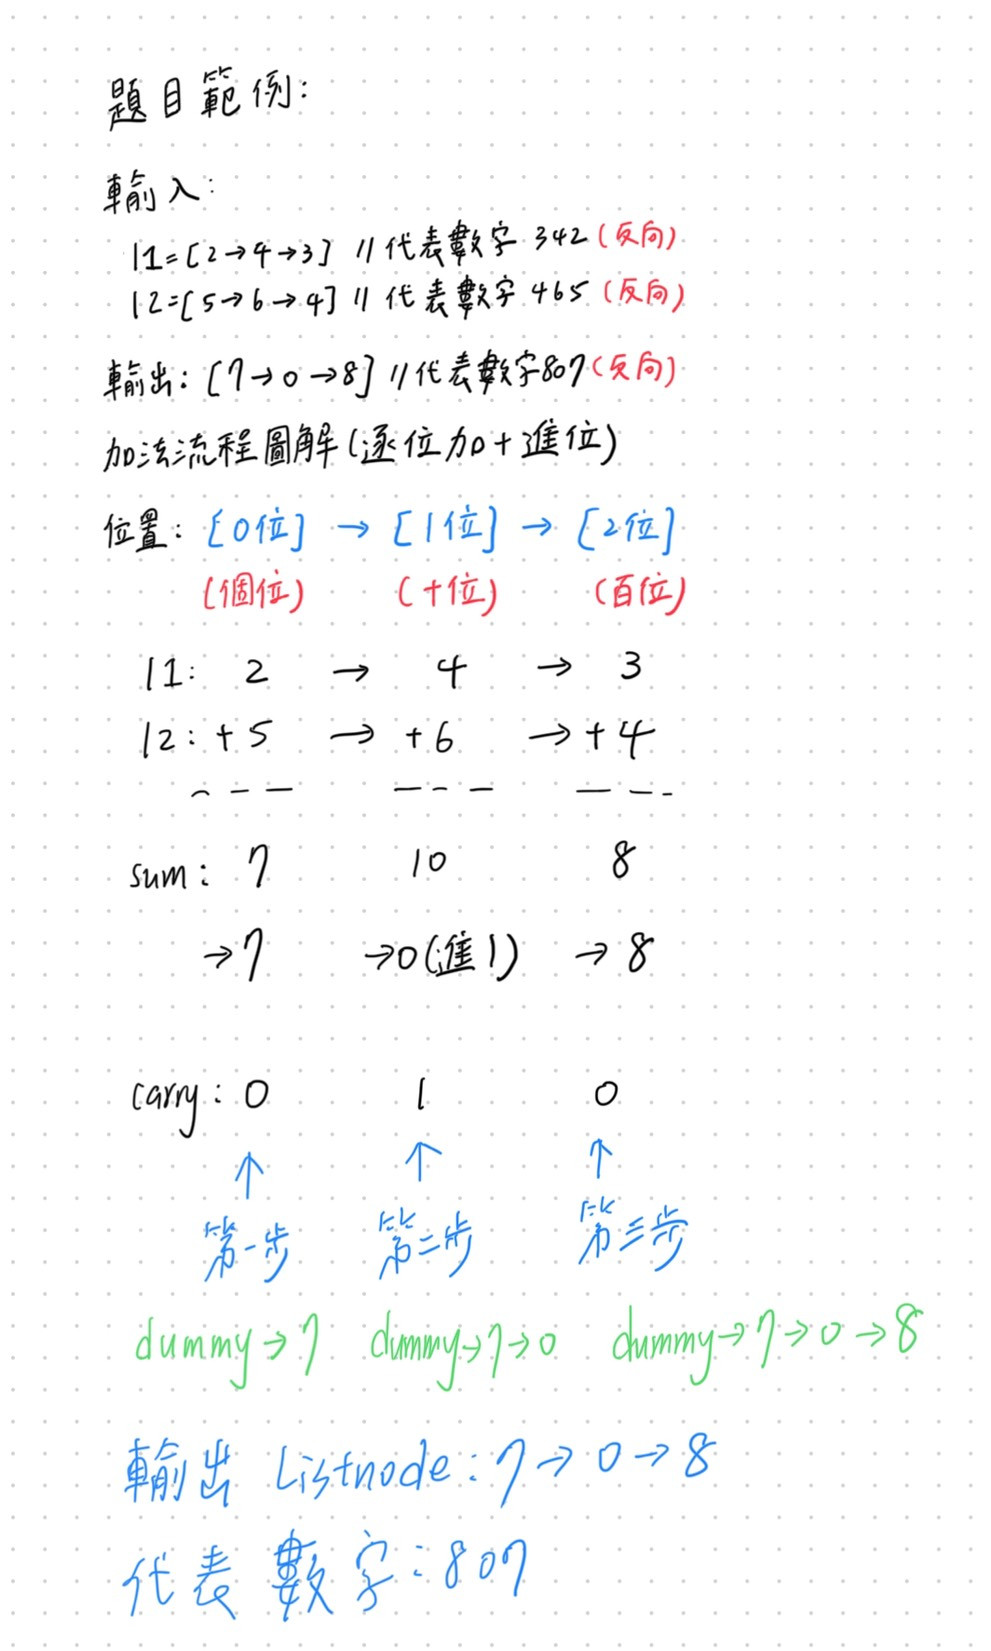 題目範例:
輸入:
l1=[2→4→3] // 代表數字 342 (反向)
l2=[5→6→4] // 代表數字 465 (反向)
輸出: [7→0→8] // 代表數字807 (反向)
加法流程圖解(逐位加+進位)
位置: [0位] → [1位] → [2位]
(個位) (十位) (百位)
l1: 2 → 4 → 3
l2: +5 → +6 → +4
--- --- ---
sum: 7 10 8
→7 →0(進1) →8
carry: 0 1 0
↑ ↑ ↑
第一步 第二步 第三步
dummy→7 dummy→7→0 dummy→7→0→8
輸出 Listnode: 7→0→8
代表數字: 807